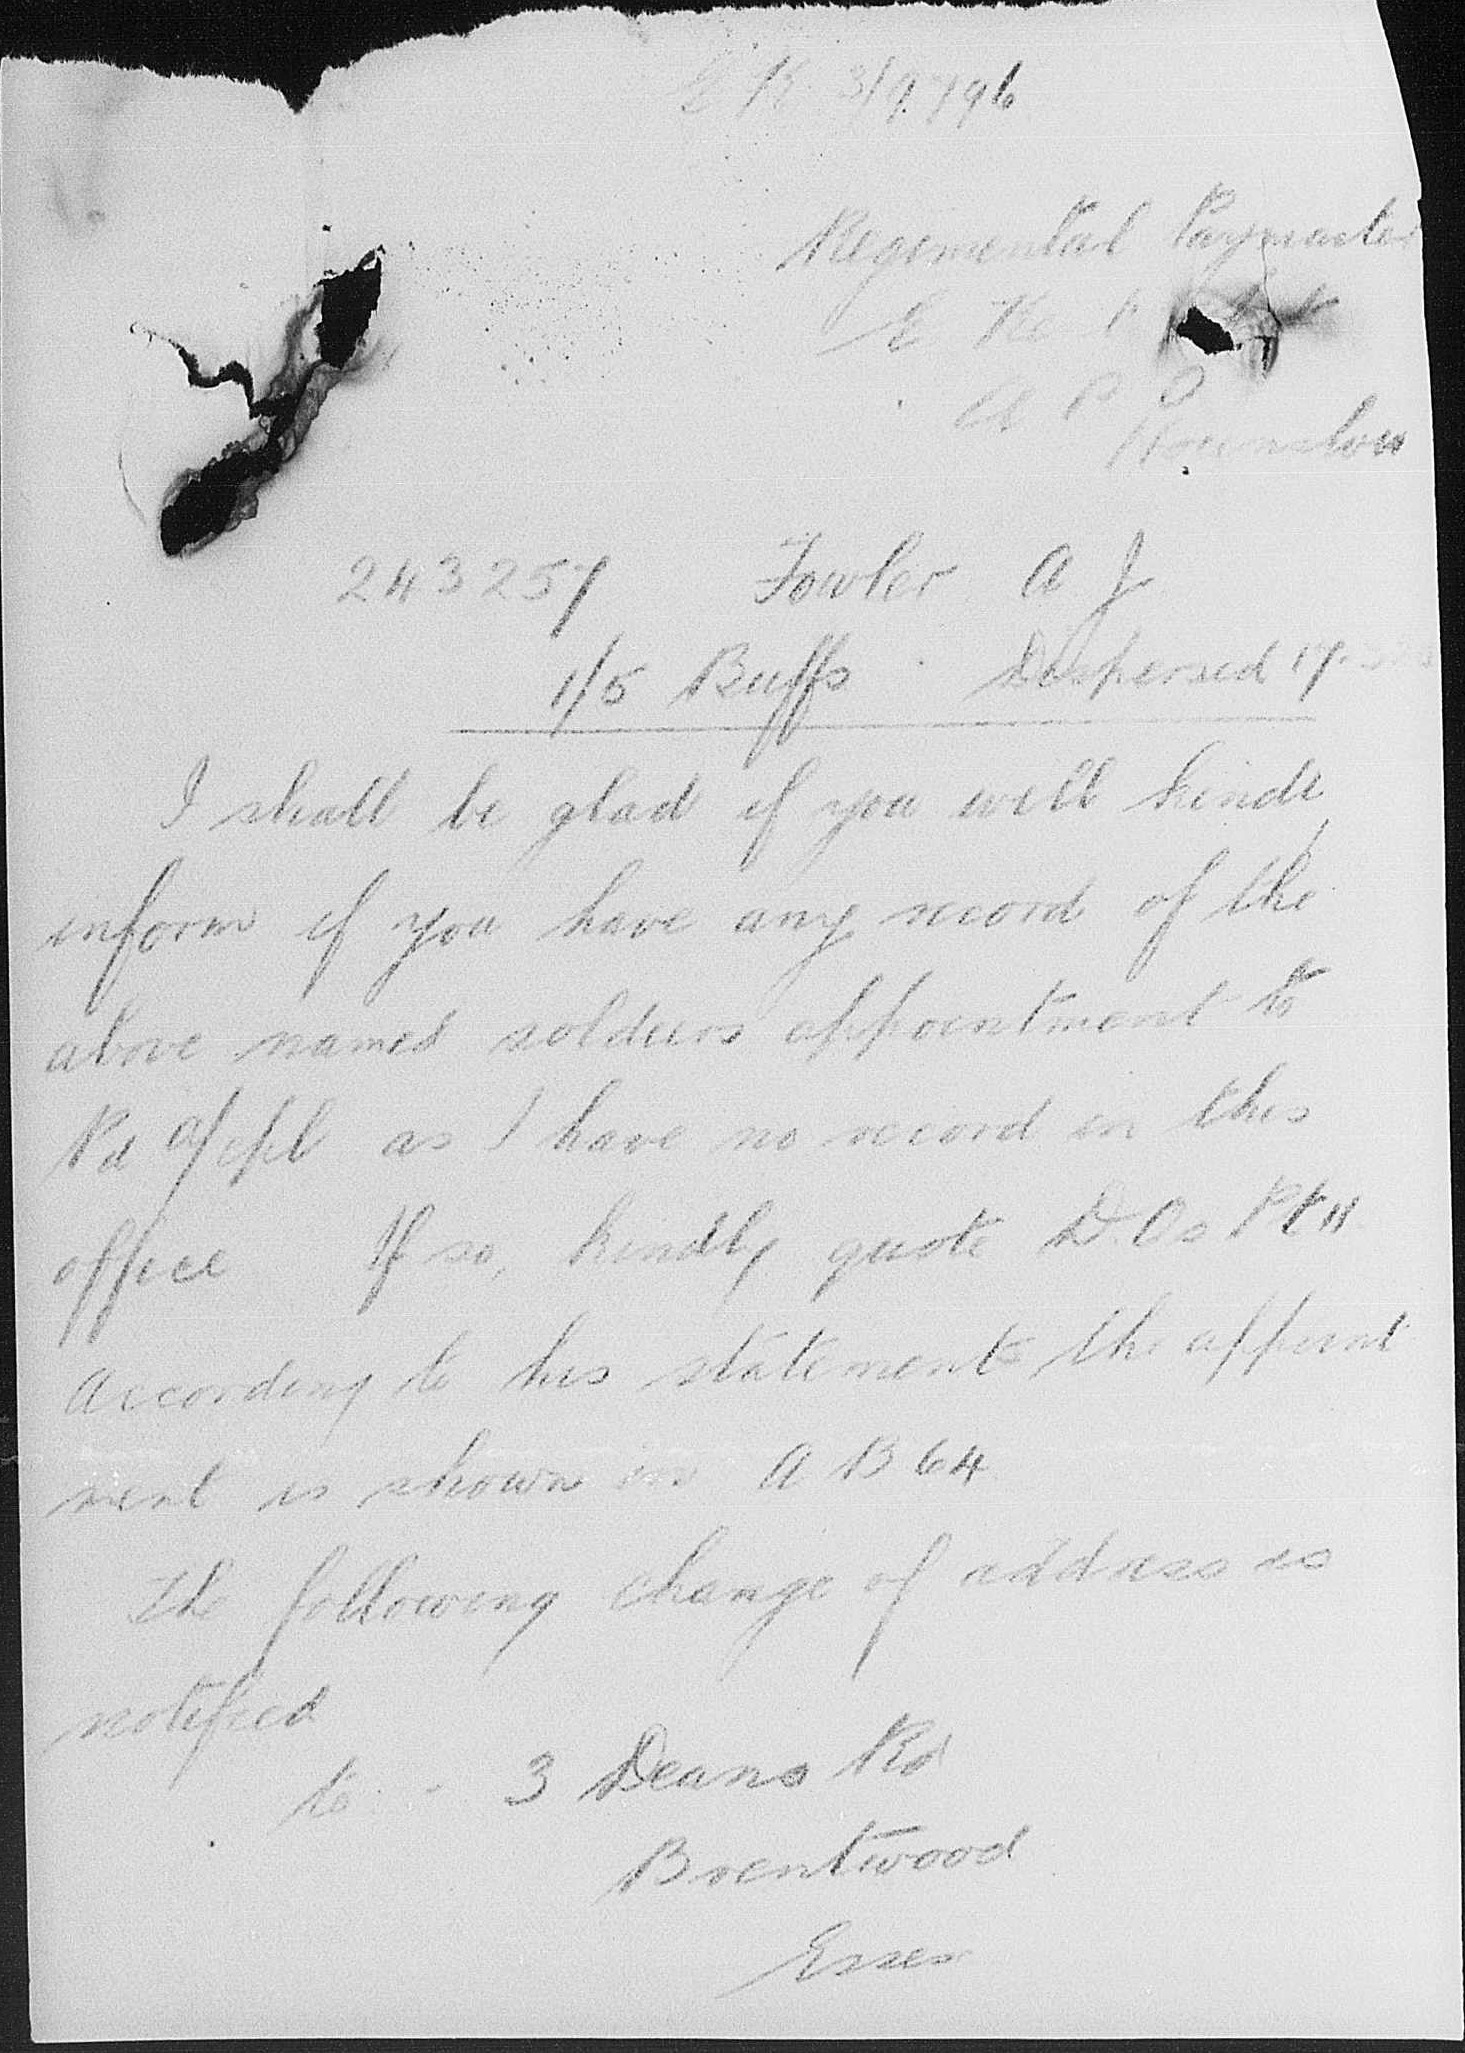 E K 3/9796
Regimental Paymaster
E Ke
A P O
Hounslow
243257 Fowler A J
1/5 Buffs Dispersed 17.
I shall be glad if you will kindly
inform if you have any record of the
above named soldiers appointment to
Pd a/cpl as I have no record in this
office If so, kindly quote D.Os Pt II
According to his statement the appoint
ment is shown in A B 64
The following change of address is
notified
to - 3 Deans Rd
Brentwood
Essex